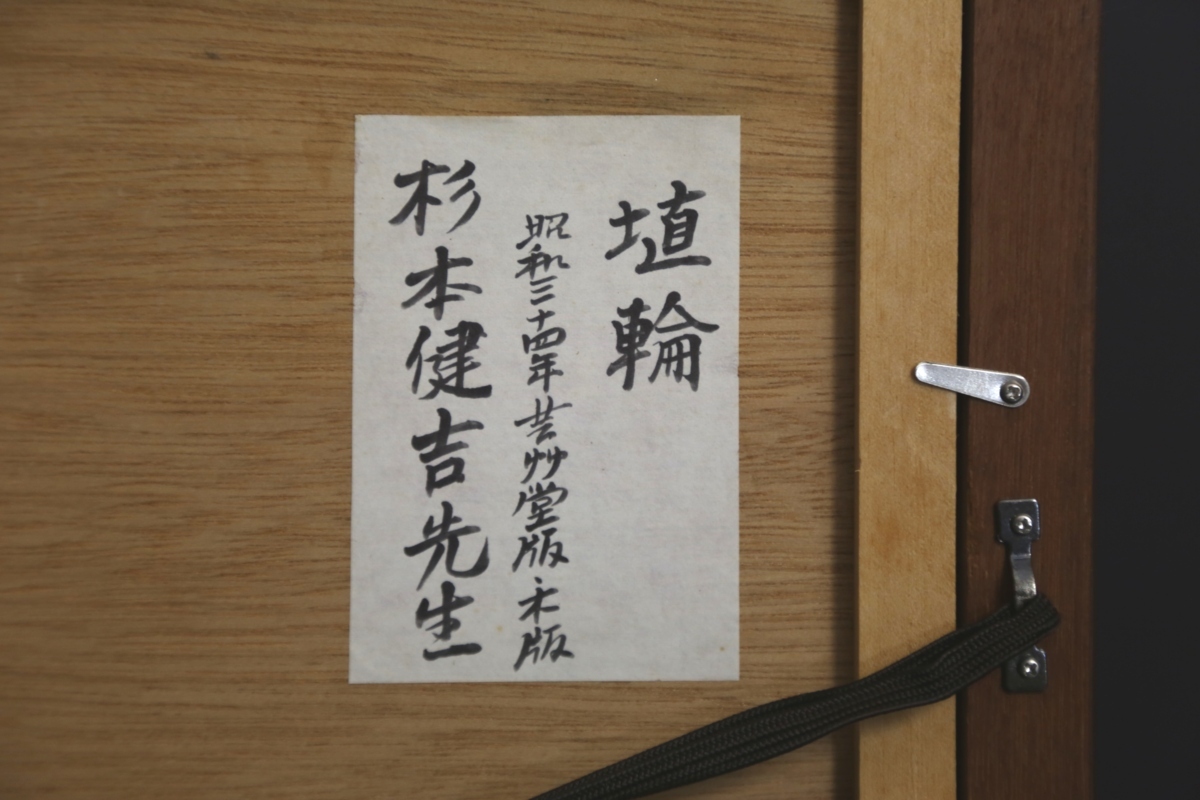 埴輪
昭和三十四年 芸艸堂版 木版
杉本健吉先生